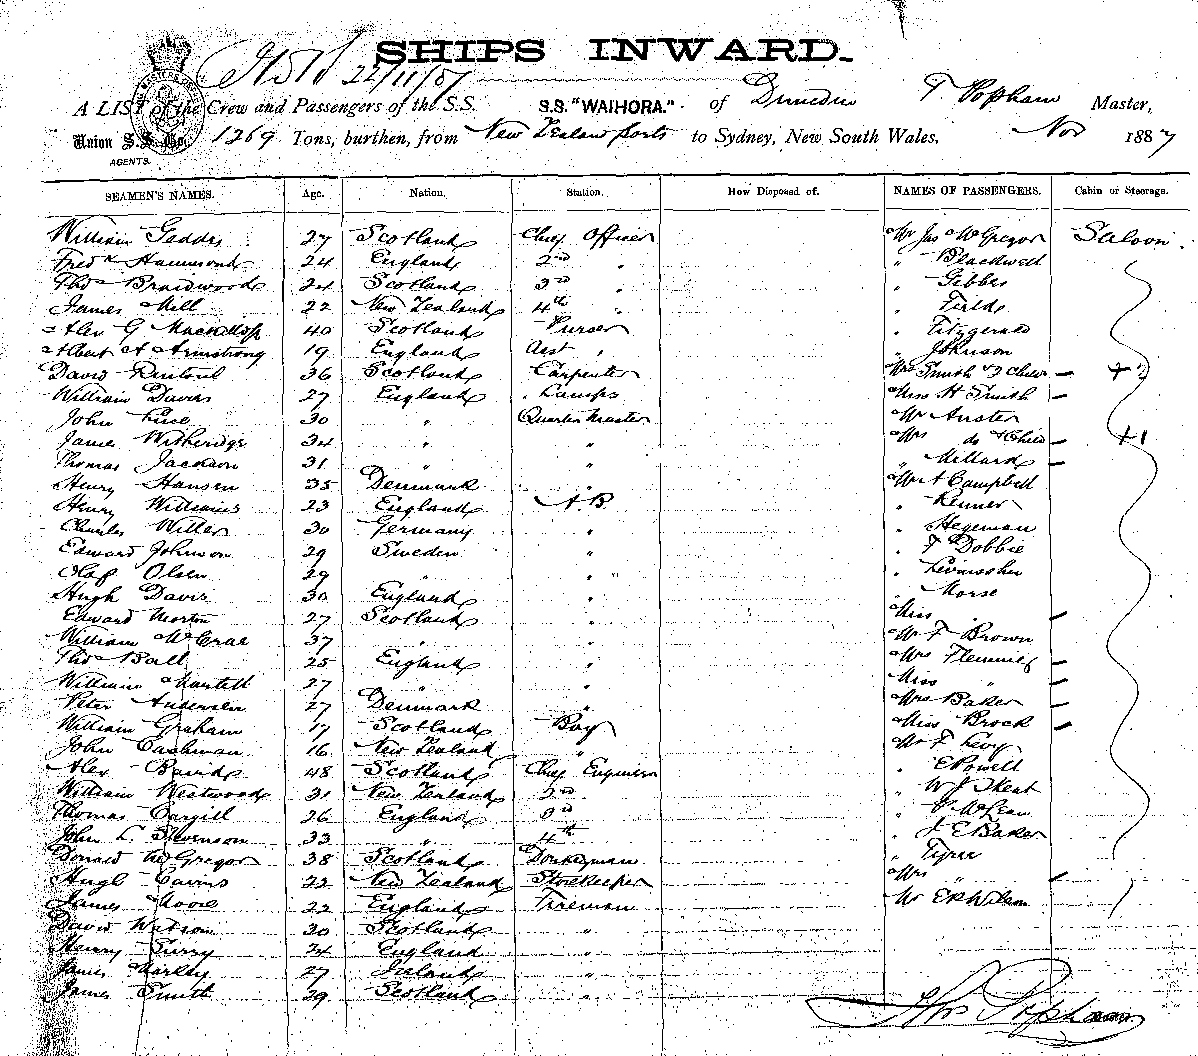 SHIPS INWARD.
22/11/87
A LIST of the Crew and Passengers of the S.S. S.S. "WAIHORA." of Dunedin T Popham Master,
Union S.S. Co. 1269 Tons, burthen, from New Zealand ports to Sydney, New South Wales, Nov 1887
AGENTS.
SEAMEN'S NAMES. Age. Nation. Station. How Disposed of. NAMES OF PASSENGERS. Cabin or Steerage.
William Geddes 27 Scotland Chief Officer Mr Jas McGregor Saloon
Fredk Hammond 24 England 2nd " " Blackwell
Thos Braidwood 24 Scotland 3rd " " Gibbes
James Mill 22 New Zealand 4th " " Fields
Alex G Mackellop 40 Scotland Purser " Fitzgerald
Albert A Armstrong 19 England Asst " " Johnson
David Rintoul 36 Scotland Carpenter Mrs Smith & 2 Chldn — +2
William Davies 27 England Lamps Miss H Smith —
John 30 " Quarter Master Mr Anster
James Witheridge 34 " " Mrs do & Child — +1
Thomas Jackson 31 " " " Millard —
Henry Hansen 35 Denmark " Mr A Campbell
Henry Williams 23 England A.B. " Renner
Charles Witter 30 Germany " " Hegeman
Edward Johnson 29 Sweden " " F Dobbie
Olaf Olsen 29 " " "
Hugh Davis 30 England " " Morse
Edward Morton 27 Scotland " Miss " —
William McCrae 37 " " Mr F Brown
Thos Ball 25 England " Mrs Fleming —
William Martell 27 " " Miss " —
Peter Andersen 27 Denmark " Mrs Baker —
William Graham 17 Scotland Boy Miss Brock —
John Cashman 16 New Zealand " Mr F Levy
Alex Baird 48 Scotland Chief Engineer " E Powell
William Westwood 31 New Zealand 2nd " W J Kent
Thomas Cargill 26 England 3rd " McLean
John L Stevenson 33 " 4th " J E Baker
Donald McGregor 38 Scotland Donkeyman "
Hugh Cairns 22 New Zealand Storekeeper Mrs " —
James Moore 22 England Fireman Mr E R Wilson
David Watson 30 Scotland "
Henry Surry 34 England "
James Markey 27 Ireland "
James Smith 29 Scotland "
Thos Popham